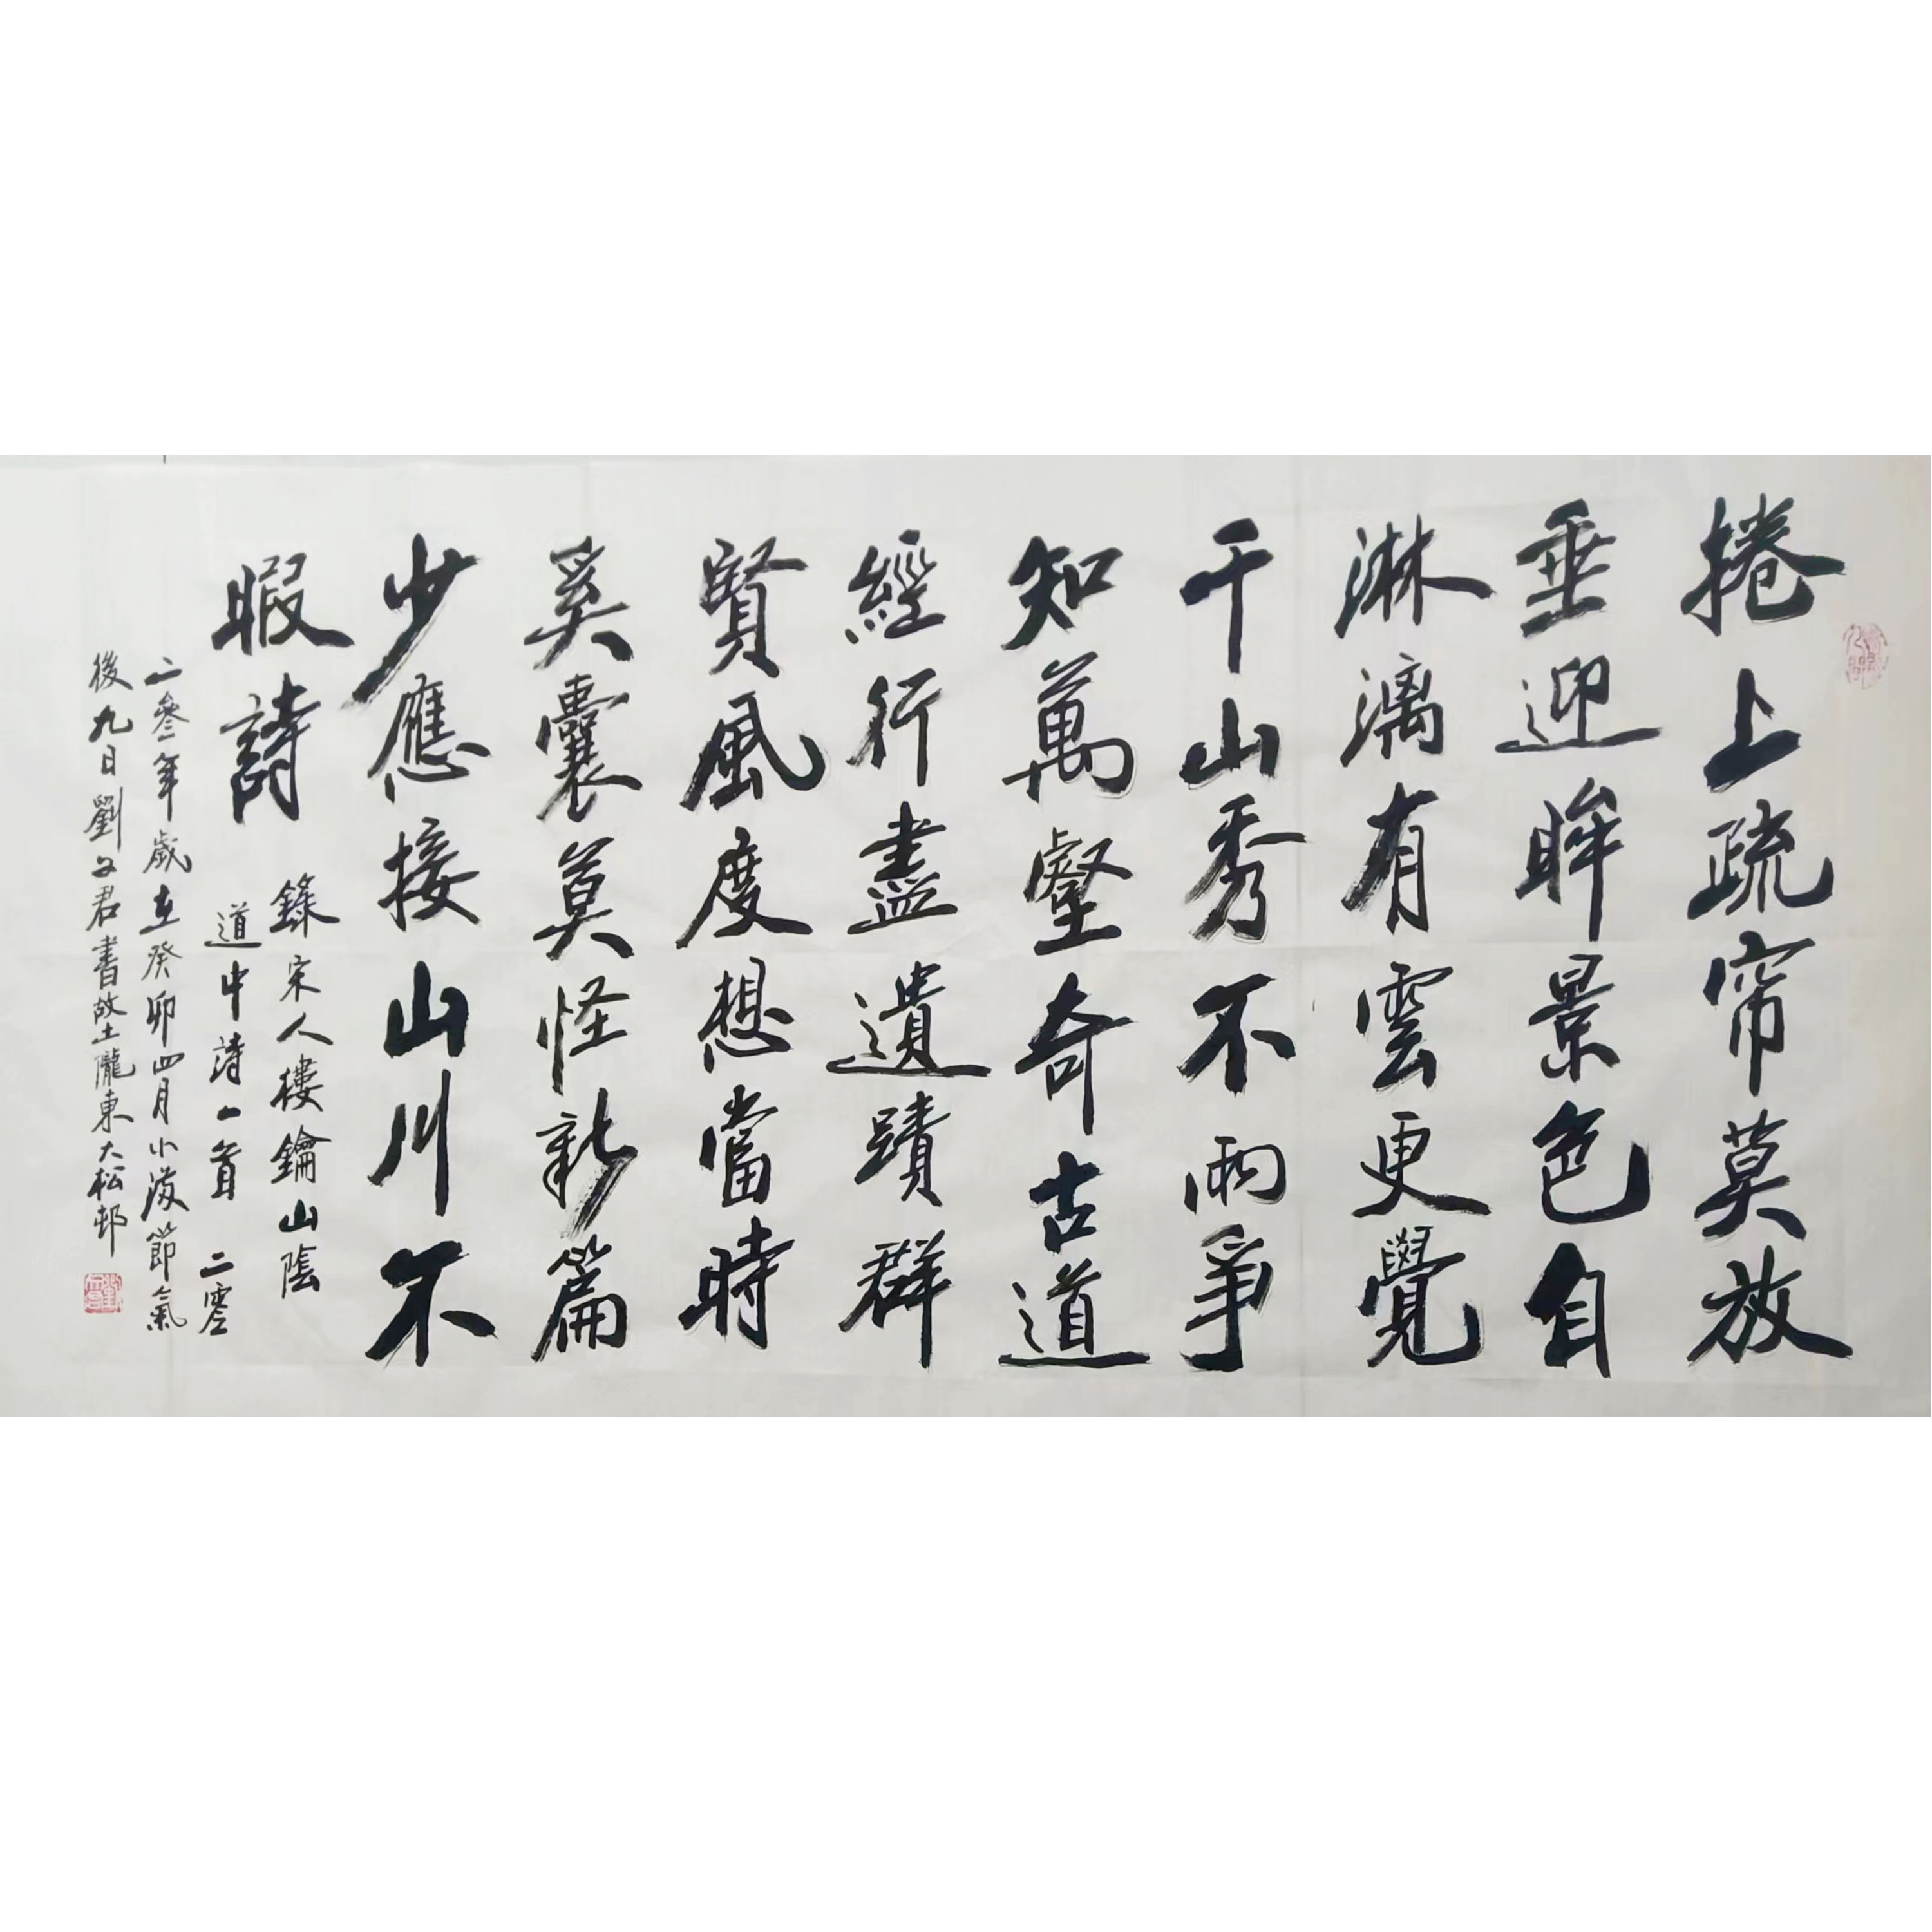 捲上疏帘莫放
垂迎眸景色自
淋漓有雲更覺
千山秀不雨爭
知萬壑奇古道
經行盡遺蹟群
賢風度想當時
奚囊莫怪新篇
少應接山川不
暇詩
錄宋人樓鑰山陰
道中詩一首 二零
二叄年歲在癸卯四月小滿節氣
後九日劉文君書故土隴東大松邨